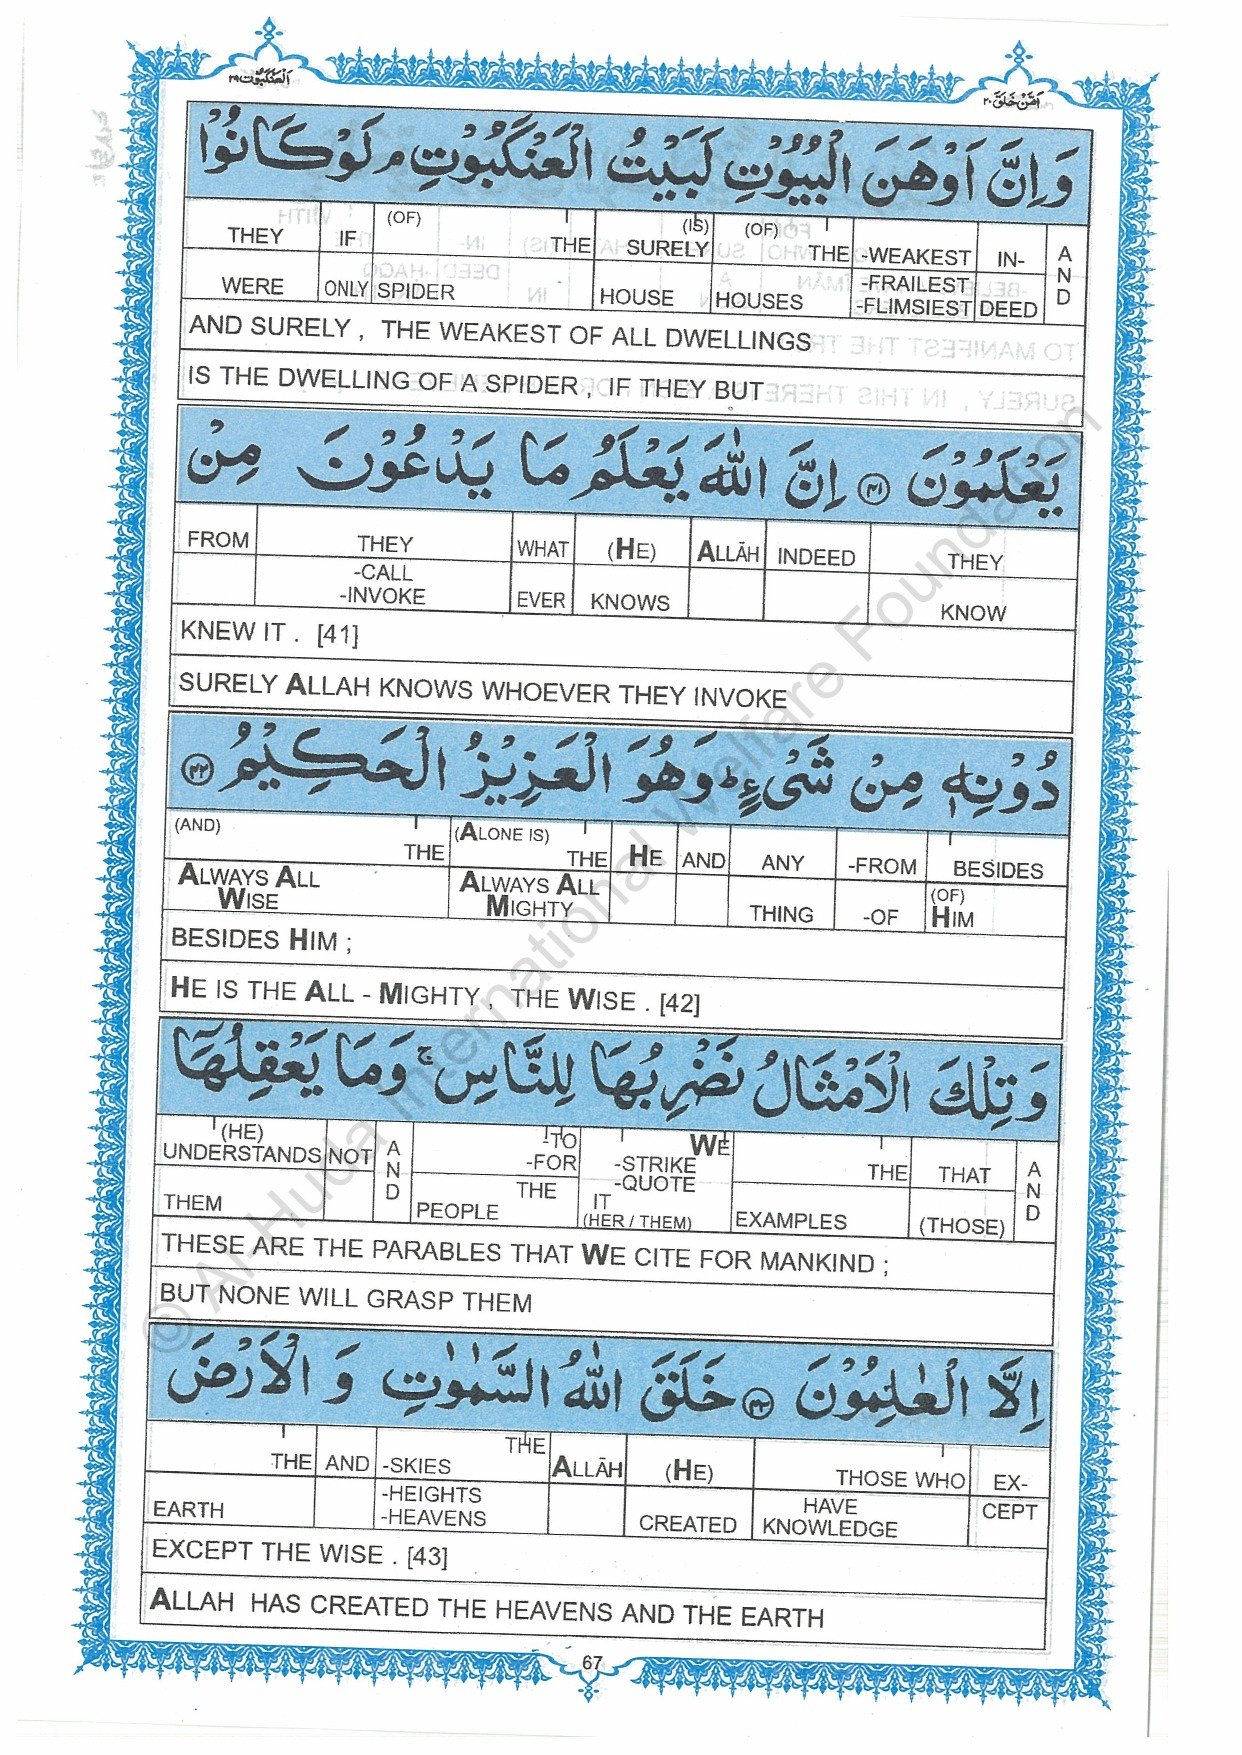 العنكبوت ٢٩
امن خلق ٢٠
وَاِنَّ اَوْهَنَ الْبُيُوْتِ لَبَيْتُ الْعَنْكَبُوْتِ ۘ لَوْ كَانُوْا
THEY IF (OF) THE (IS) SURELY (OF) THE -WEAKEST IN- AND
WERE ONLY SPIDER HOUSE HOUSES -FRAILEST -FLIMSIEST DEED
AND SURELY , THE WEAKEST OF ALL DWELLINGS
IS THE DWELLING OF A SPIDER , IF THEY BUT
يَعْلَمُوْنَ ﴿۴۱﴾ اِنَّ اللّٰهَ يَعْلَمُ مَا يَدْعُوْنَ مِنْ
FROM THEY WHAT (HE) ALLĀH INDEED THEY
-CALL -INVOKE EVER KNOWS KNOW
KNEW IT . [41]
SURELY ALLAH KNOWS WHOEVER THEY INVOKE
دُوْنِهٖ مِنْ شَيْءٍ ؕ وَهُوَ الْعَزِيْزُ الْحَكِيْمُ ﴿۴۲﴾
(AND) THE (ALONE IS) THE HE AND ANY -FROM BESIDES
ALWAYS ALL WISE ALWAYS ALL MIGHTY THING -OF (OF) HIM
BESIDES HIM ;
HE IS THE ALL - MIGHTY , THE WISE . [42]
وَتِلْكَ الْاَمْثَالُ نَضْرِبُهَا لِلنَّاسِ ۚ وَمَا يَعْقِلُهَاۤ
(HE) UNDERSTANDS NOT AND -TO -FOR WE -STRIKE -QUOTE THE THAT AND
THEM THE PEOPLE IT (HER / THEM) EXAMPLES (THOSE)
THESE ARE THE PARABLES THAT WE CITE FOR MANKIND ;
BUT NONE WILL GRASP THEM
اِلَّا الْعٰلِمُوْنَ ﴿۴۳﴾ خَلَقَ اللّٰهُ السَّمٰوٰتِ وَ الْاَرْضَ
THE AND THE -SKIES ALLĀH (HE) THOSE WHO EX-
EARTH -HEIGHTS -HEAVENS CREATED HAVE KNOWLEDGE CEPT
EXCEPT THE WISE . [43]
ALLAH HAS CREATED THE HEAVENS AND THE EARTH
67
© Al-Huda International Welfare Foundation